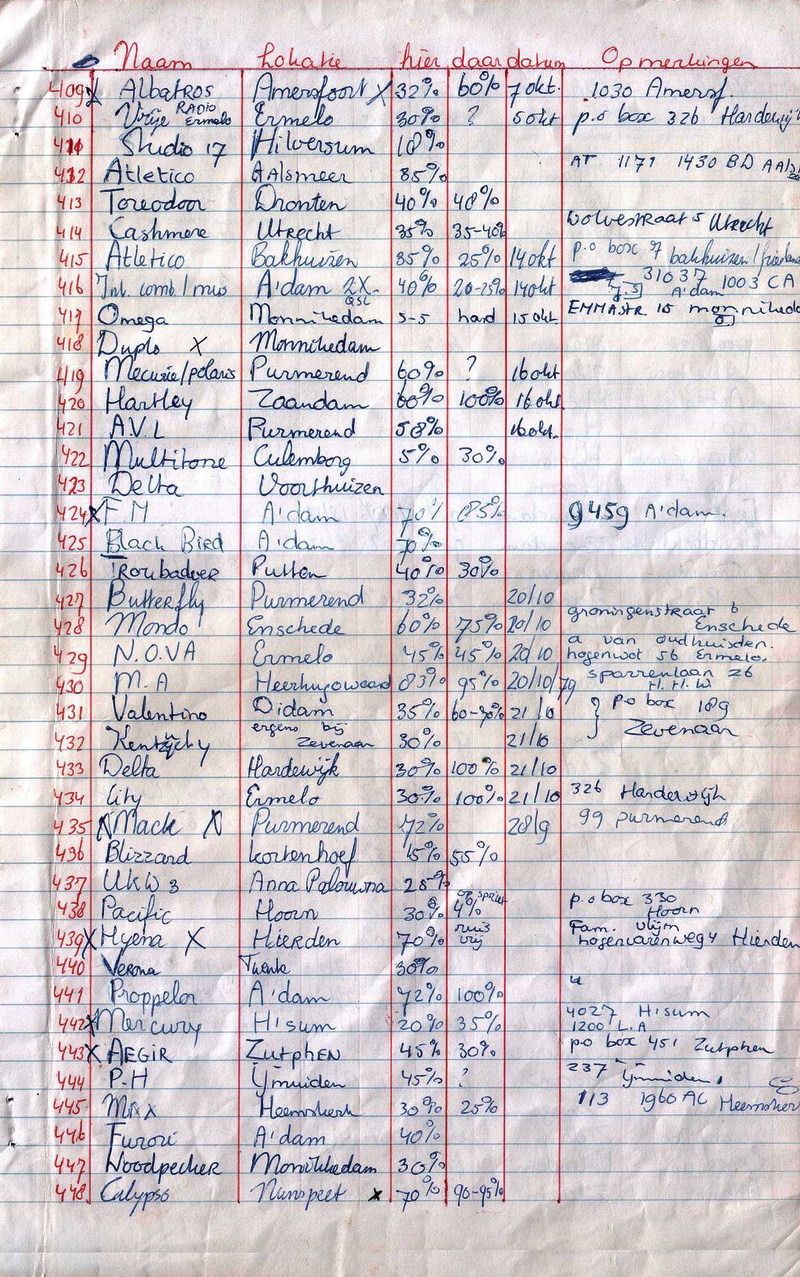 Naam Lokatie hier daar datum Opmerkingen
409 x Albatros Amersfoort x 32% 60% 7 okt. 1030 Amersf.
410 Vrije RADIO Ermelo Ermelo 30% ? 5 okt p.o box 326 Hardewijk
411 Studio 17 Hilversum 18%
412 Atletico Aalsmeer 85% AT 1171 1430 BD
413 Toreodoor Dronten 40% 48%
414 Cashmere Utrecht 35% 35-40% wolvestraat 5 Utrecht
415 Atletico Bakhuizen 85% 25% 14 okt p.o box 7 bakhuizen/friesland
416 Int. comb/mw A'dam 2X QSL 40% 20-25% 14 okt 31037 1003 CA A'dam
417 Omega Monnikedam 5-5 hard 15 okt EMMAstr 15
418 Duplo X Monnikedam
419 Mecurie/polaris Purmerend 60% ? 16 okt
420 Hartley Zaandam 60% 100% 16 okt.
421 A.V.L Purmerend 58% 16 okt.
422 Multitone Culemborg 5% 30%
423 Delta Voorthuizen
424 x F M A'dam 70% 85% 9459 A'dam.
425 Black Bird A'dam 70%
426 Troubadoer Putten 40% 30%
427 Butterfly Purmerend 32% 20/10
428 Mondo Enschede 60% 75% 20/10 groningenstraat 6 Enschede
429 N.O.VA Ermelo 45% 45% 20/10 a van oudhuisden. hogenwot 56 Ermelo.
430 M.A Heerhugowaard 83% 95% 20/10/79 sparrenlaan 26 H.H.W
431 Valentino Didam 35% 60-90% 21/10 } p o box 189
432 Kentucky ergens bij Zevenaar 30% 21/10 Zevenaar
433 Delta Hardewijk 30% 100% 21/10
434 City Ermelo 30% 100% 21/10 326 Harderwijk
435 X Mack X Purmerend 72% 28/9 99 purmerend
436 Blizzard kortenhoef 45% 55%
437 UKW 3 Anna Palouwna 25%
438 Pacific Hoorn 30% op sprint 4% p.o box 330 Hoorn
439 X Hyena X Hierden 70% ruis vrij Fam. hogenvarenweg 4 Hierden
440 Verona Twente 30%
441 Proppelor A'dam 72% 100%
442 x Mercury H'sum 20% 35% 4027 H'sum 1200 L.A
443 X AEGiR ZutPHEN 45% 30% po box 451 Zutphen
444 P.H IJmuiden 45% ? 237 IJmuiden.
445 Max Heemskerk 30% 25% 113 1960 AC Heemskerk
446 Furori A'dam 40%
447 Woodpecker Monnikkedam 30%
448 Calypso Nunspeet x 70% 90-95%